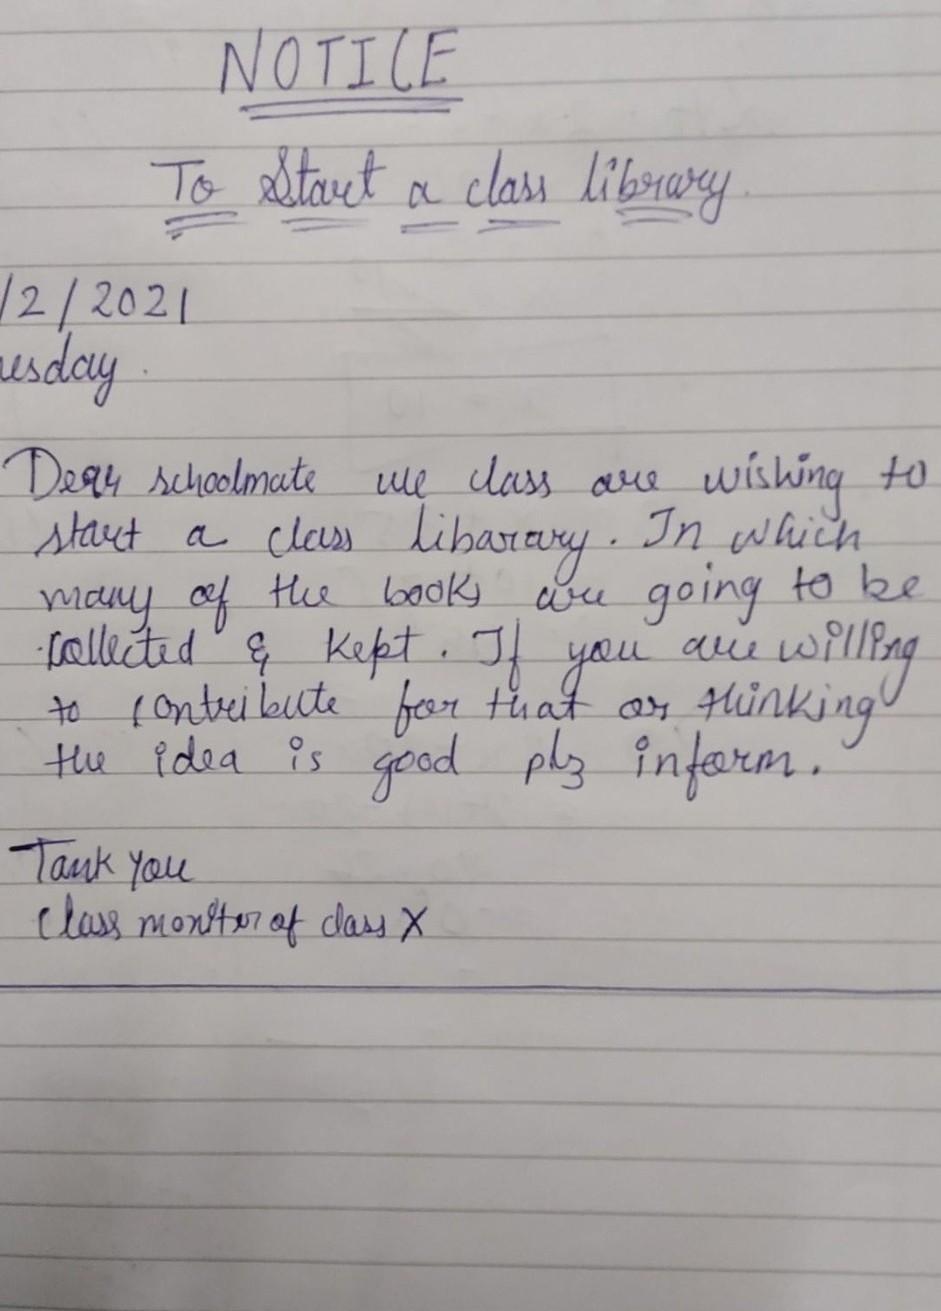 NOTICE
To Start a class library.
/2/2021
uesday.
Dear schoolmate we class are wishing to
start a class libarary. In which
many of the books are going to be
collected & kept. If you are willing
to contribute for that or thinking
the idea is good plz inform.
Tank you
Class monitor of class X